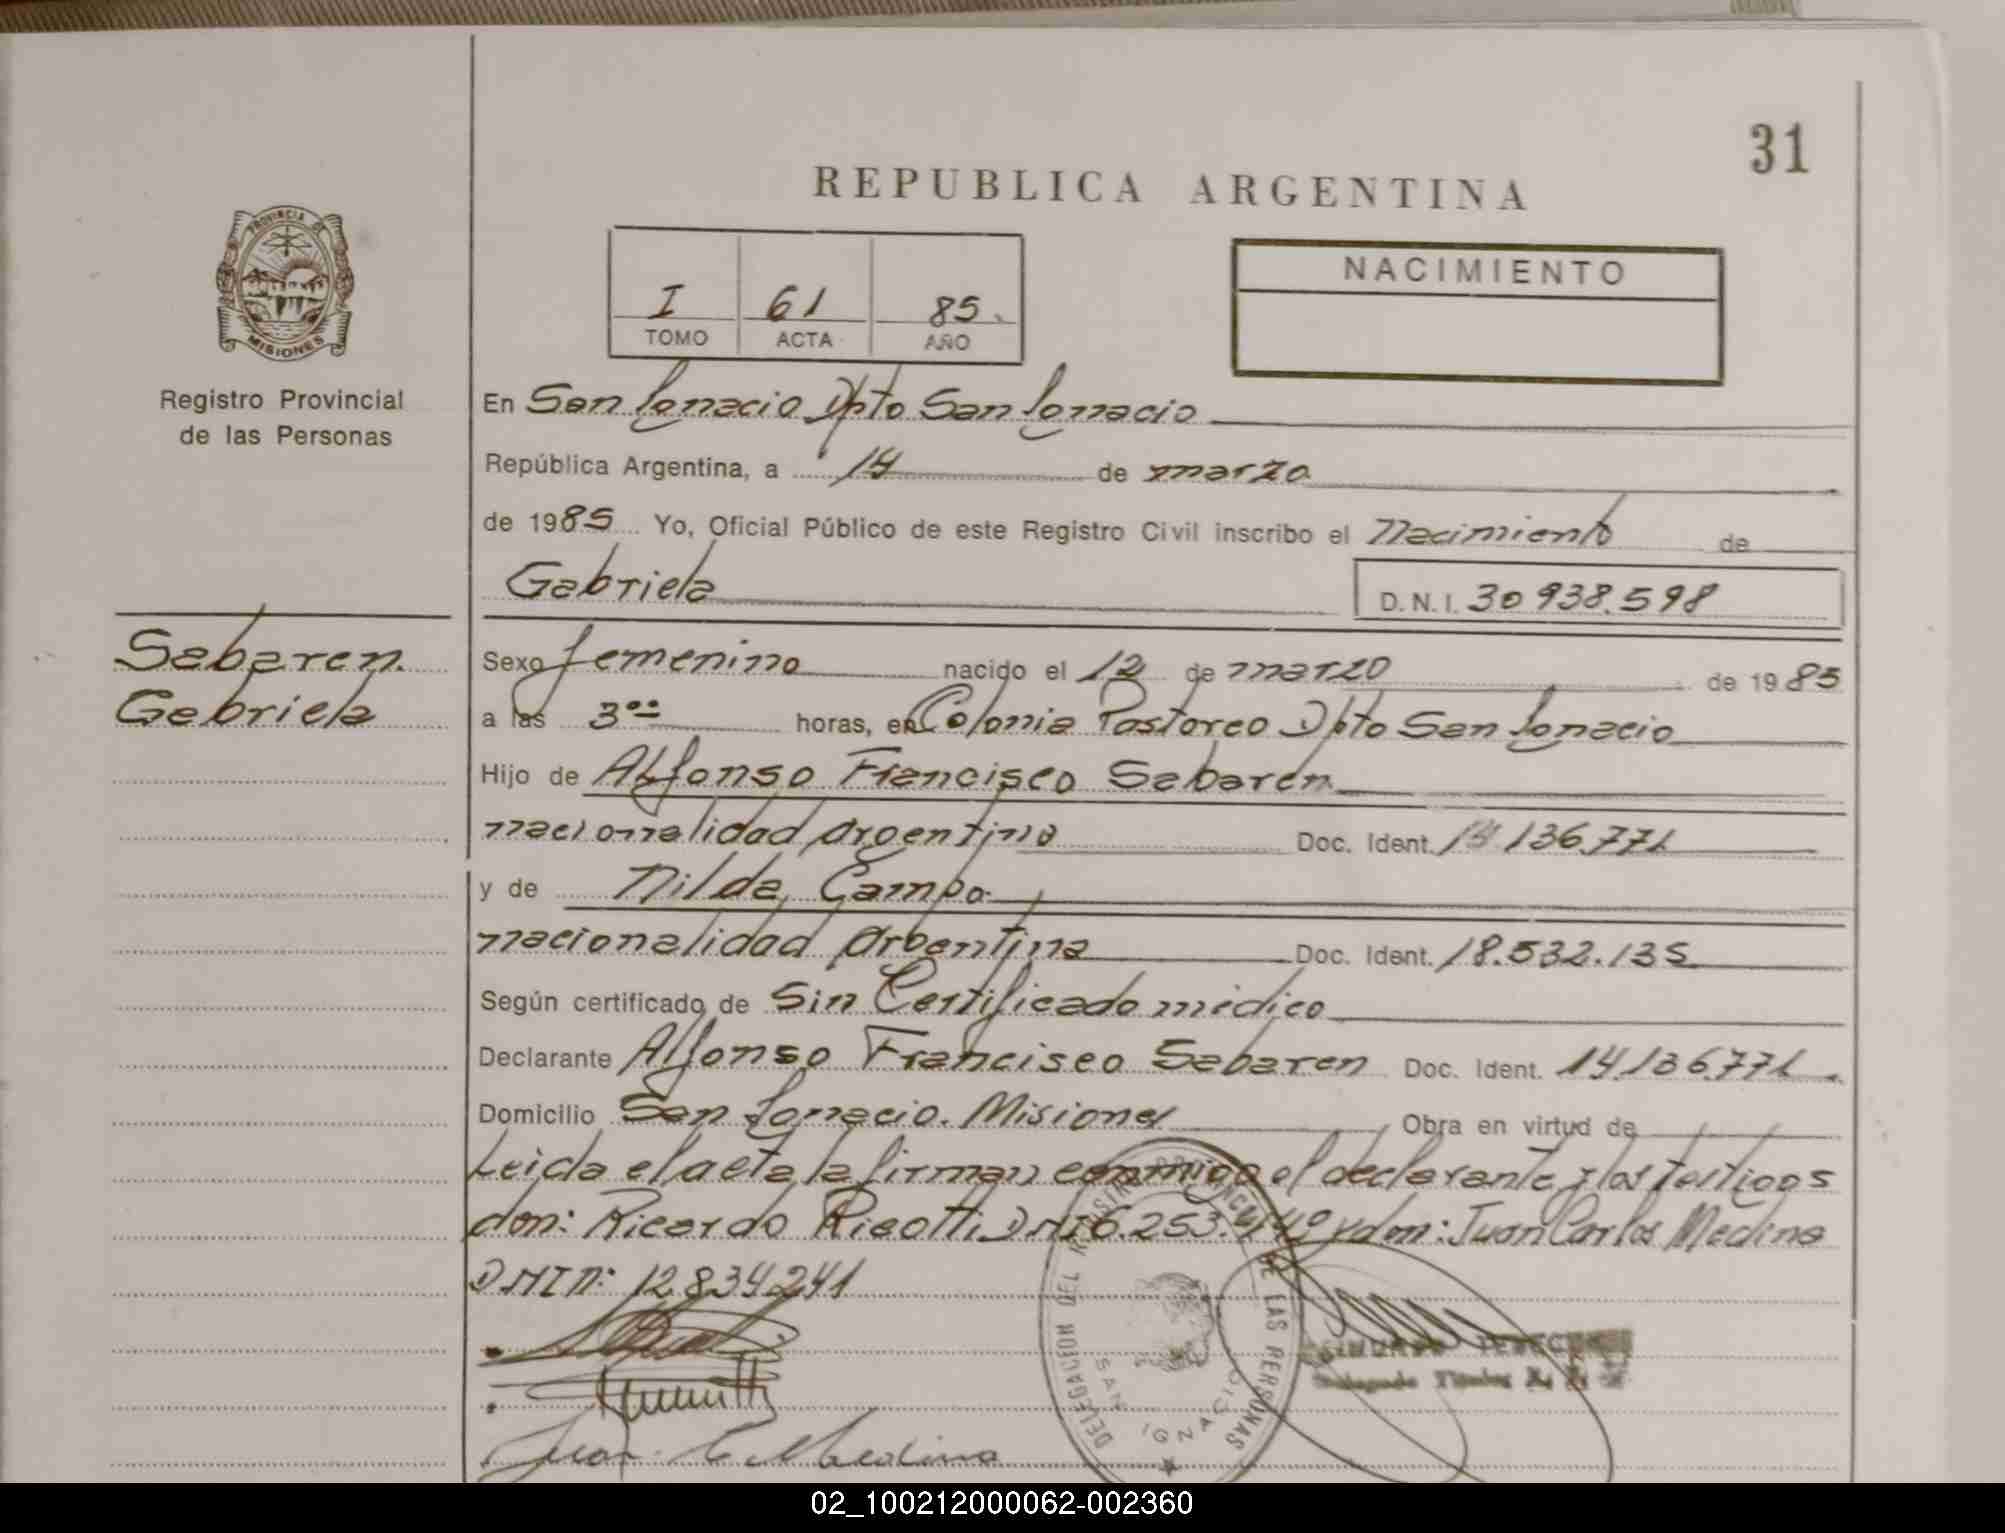 31
REPUBLICA ARGENTINA
PROVINCIA DE
MISIONES
Registro Provincial
de las Personas
I 61 85.
TOMO ACTA AÑO
NACIMIENTO
En San Ignacio Dpto San Ignacio
República Argentina, a 14 de marzo
de 1985 Yo, Oficial Público de este Registro Civil inscribo el Nacimiento de
Gabriela D.N.I. 30938.598
Sabaren.
Gabriela
Sexo femenino nacido el 12 de marzo de 1985
a las 3⁰⁰ horas, en Colonia Pastoreo Dpto San Ignacio
Hijo de Alfonso Francisco Sabaren
nacionalidad argentina Doc. Ident. 14.136.771
y de Nilda Campo
nacionalidad argentina Doc. Ident. 18.532.135
Según certificado de Sin Certificado médico
Declarante Alfonso Francisco Sabaren Doc. Ident. 14.136.771.
Domicilio San Ignacio. Misiones Obra en virtud de
Leida el acta la firman conmigo el declarante y los testigos
don: Ricardo Rigotti DNI 6.253. y don: Juan Carlos Medina
DNI n: 12.834241
Juan C Medina
DELEGACION DEL REGISTRO PROVINCIAL DE LAS PERSONAS
SAN IGNACIO
02_100212000062-002360